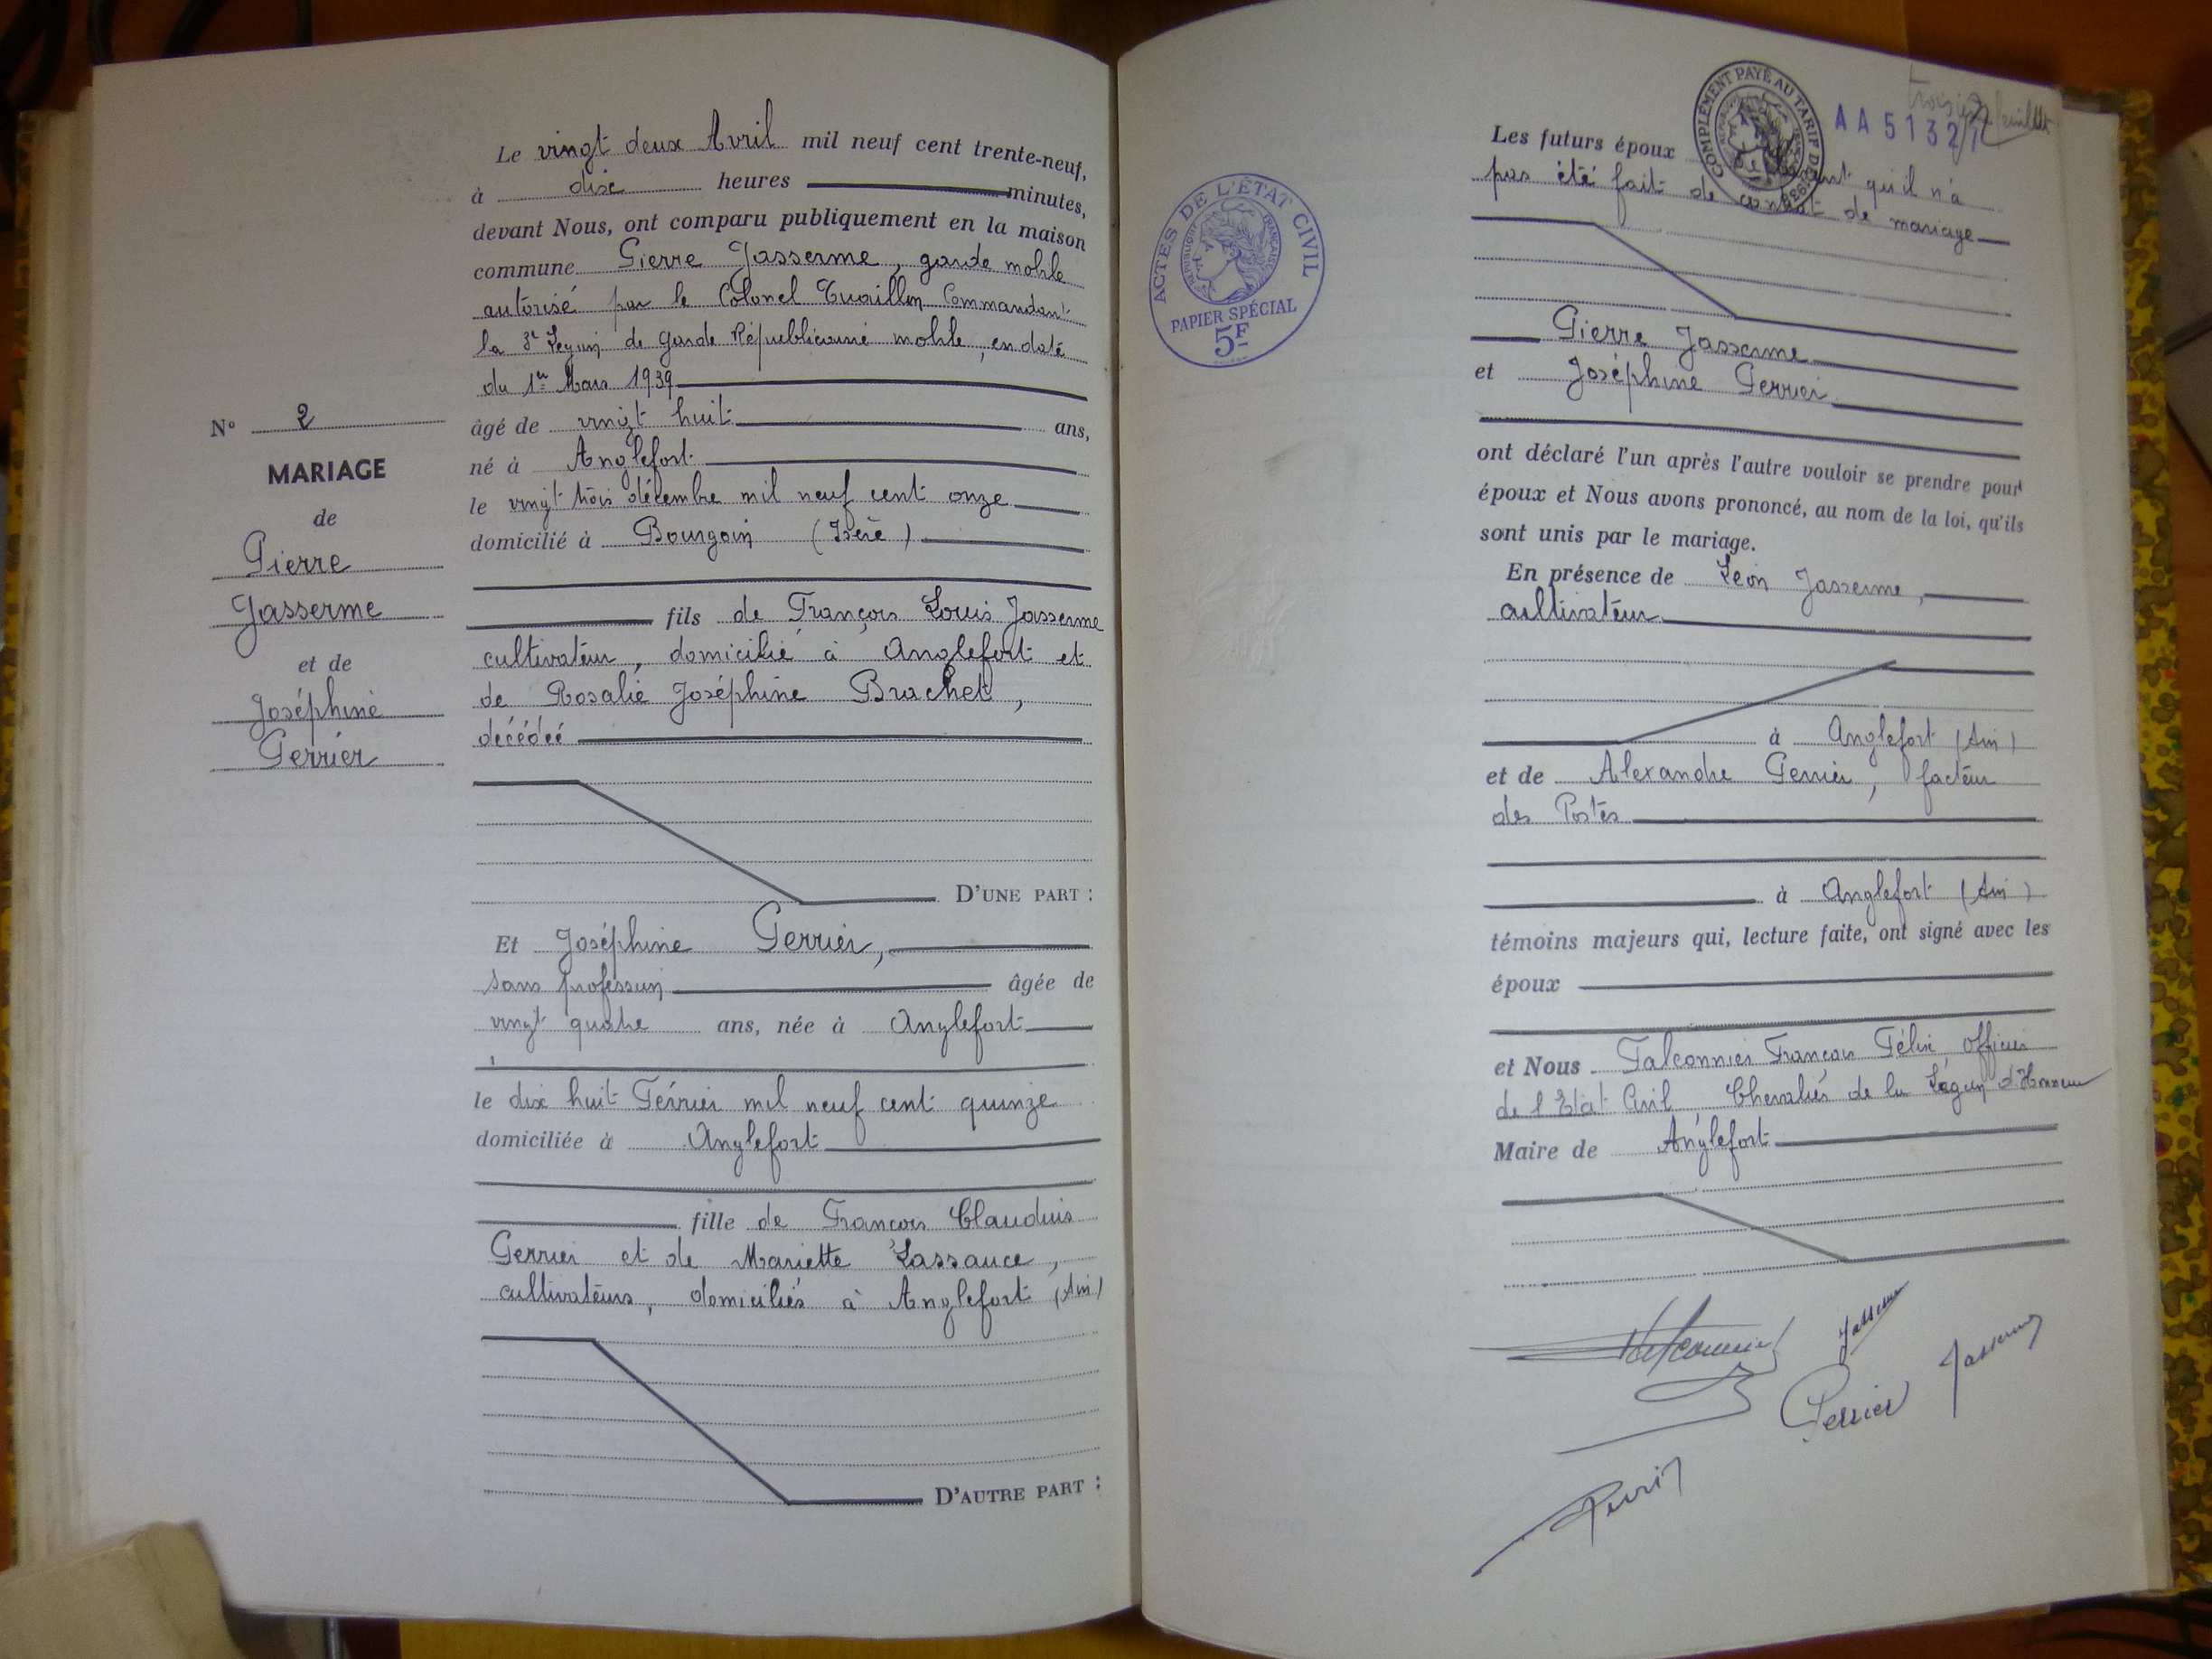 Le vingt deux Avril mil neuf cent trente-neuf,
à dix heures minutes,
devant Nous, ont comparu publiquement en la maison
commune Pierre Jasserme, garde mobile
autorisé par le Colonel Commandant
la 3e Légion de Garde Républicaine mobile, en date
du 1er Mars 1939
âgé de vingt huit ans,
né à Anglefort
le vingt trois décembre mil neuf cent onze
domicilié à Bourgoin (Isère)
fils de François Louis Jasserme
cultivateur, domicilié à Anglefort et
de Rosalie Joséphine Brachet,
décédée
D'UNE PART :
Et Joséphine Perrier,
sans profession âgée de
vingt quatre ans, née à Anglefort
le dix huit Février mil neuf cent quinze
domiciliée à Anglefort
fille de François Claudius
Perrier et de Mariette Lassauce,
cultivateurs, domiciliés à Anglefort (Ain)
D'AUTRE PART :
N° 2
MARIAGE
de
Pierre
Jasserme
et de
Joséphine
Perrier
ACTES DE L'ÉTAT CIVIL
RÉPUBLIQUE FRANÇAISE
PAPIER SPÉCIAL
5F
COMPLÉMENT PAYÉ AU TARIF DE
AA 5132
Les futurs époux qu'il n'a
pas été fait de contrat de mariage
Pierre Jasserme
et Joséphine Perrier
ont déclaré l'un après l'autre vouloir se prendre pour
époux et Nous avons prononcé, au nom de la loi, qu'ils
sont unis par le mariage.
En présence de Léon Jasserme,
cultivateur
à Anglefort (Ain)
et de Alexandre Perrier, facteur
des Postes
à Anglefort (Ain)
témoins majeurs qui, lecture faite, ont signé avec les
époux
et Nous Falconnier François Félix, officier
de l'Etat Civil, Chevalier de la Légion d'Honneur
Maire de Anglefort
Falconnier
Jasserme
Perrier
Jasserme
Perrier